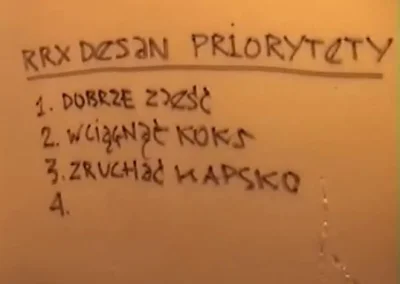 RRX DESAN PRIORYTETY
1. DOBRZE ZJEŚĆ
2. WCIĄGNĄĆ KOKS
3. ZRUCHAĆ HAPSKO
4.